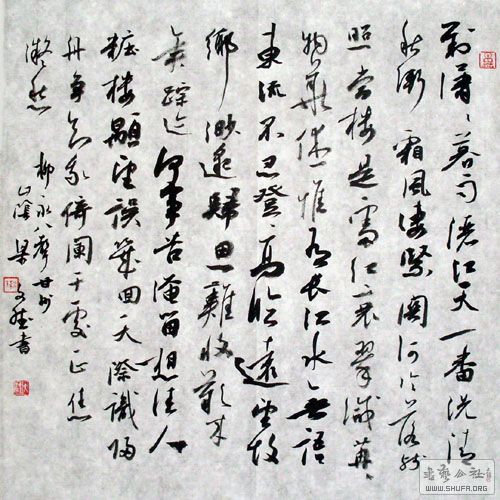 對瀟瀟暮雨洒江天一番洗清
秋漸霜風凄緊關河冷落殘
照當樓是處紅衰翠減苒苒
物華休惟有長江水無語
東流不忍登高臨遠望故
鄉渺邈歸思難收歎年
來踪迹何事苦淹留想佳人
粧樓顒望誤幾回天際識歸
舟爭知我倚闌干處正恁
凝愁 柳永八聲甘州
山陰梁書
書藝公社
WWW.SHUFA.ORG